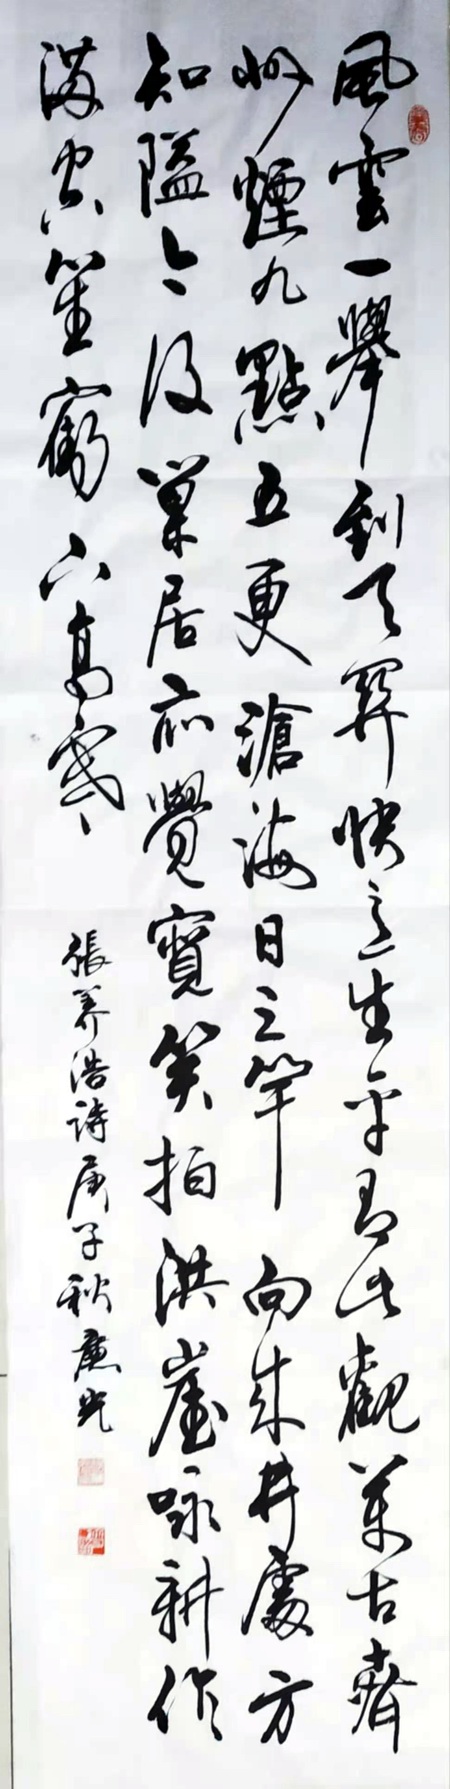 風雲一舉到天關快意生平有此觀萬古齊
州煙九點五更滄海日三竿向來井處方
知隘今後巢居亦覺寬笑拍洪崖咏新作
滿空笙鶴下高寒
張養浩詩庚子秋